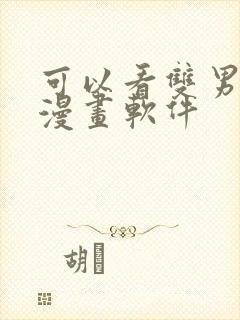 可以看雙男
漫畫軟件
胡